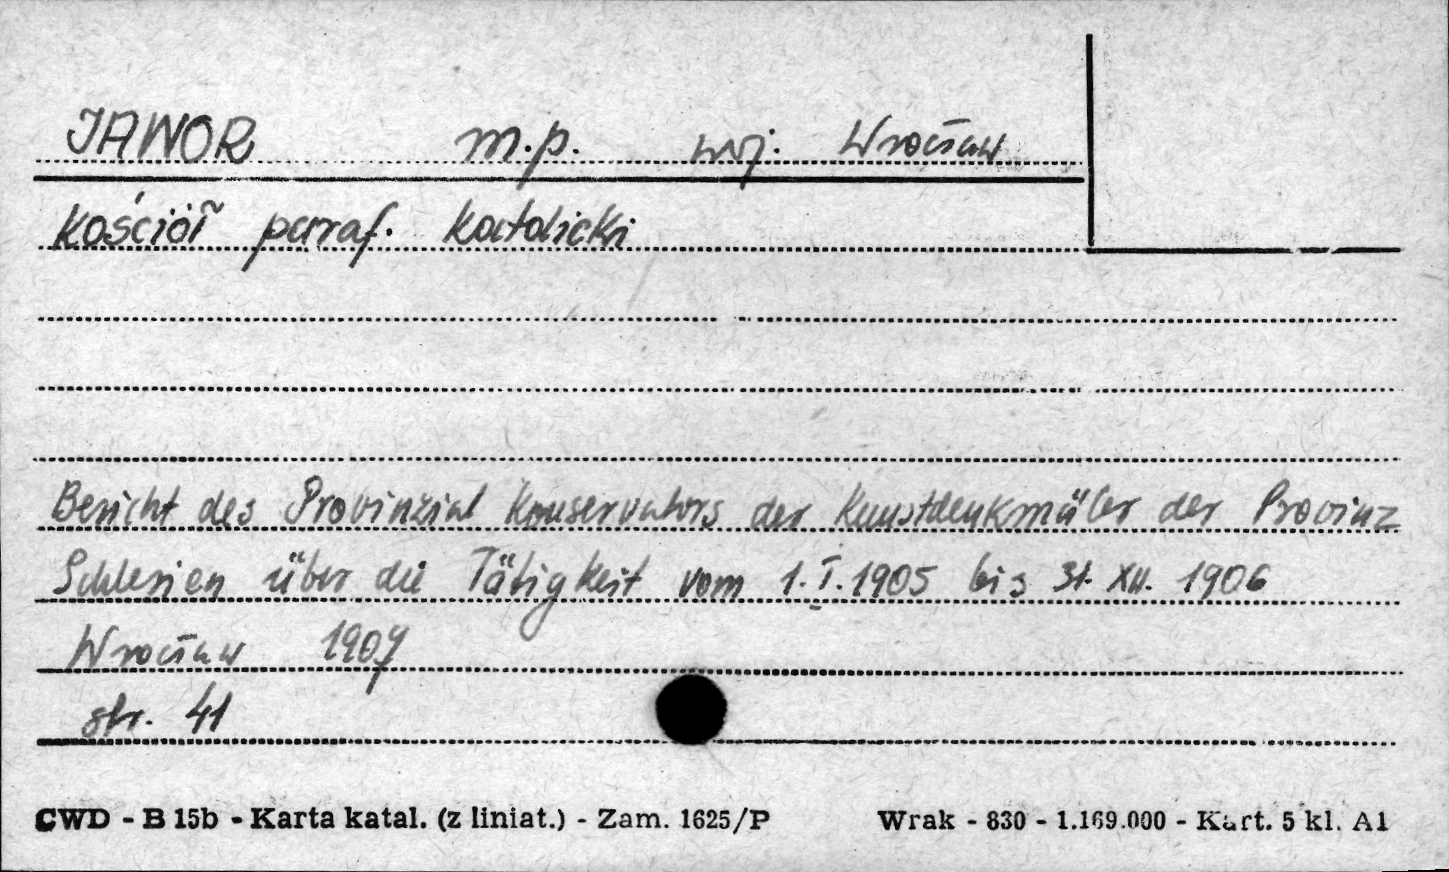 JAWOR m.p. woj. Wrocław
kościół paraf. katolicki
Bericht des Provinzial Konservators der Kunstdenkmäler der Provinz
Schlesien über die Tätigkeit vom 1.I.1905 bis 31. XII. 1906
Wrocław 1907
str. 41
CWD - B 15b - Karta katal. (z liniat.) - Zam. 1625/P Wrak - 830 - 1.169.000 - Kart. 5 kl. A1